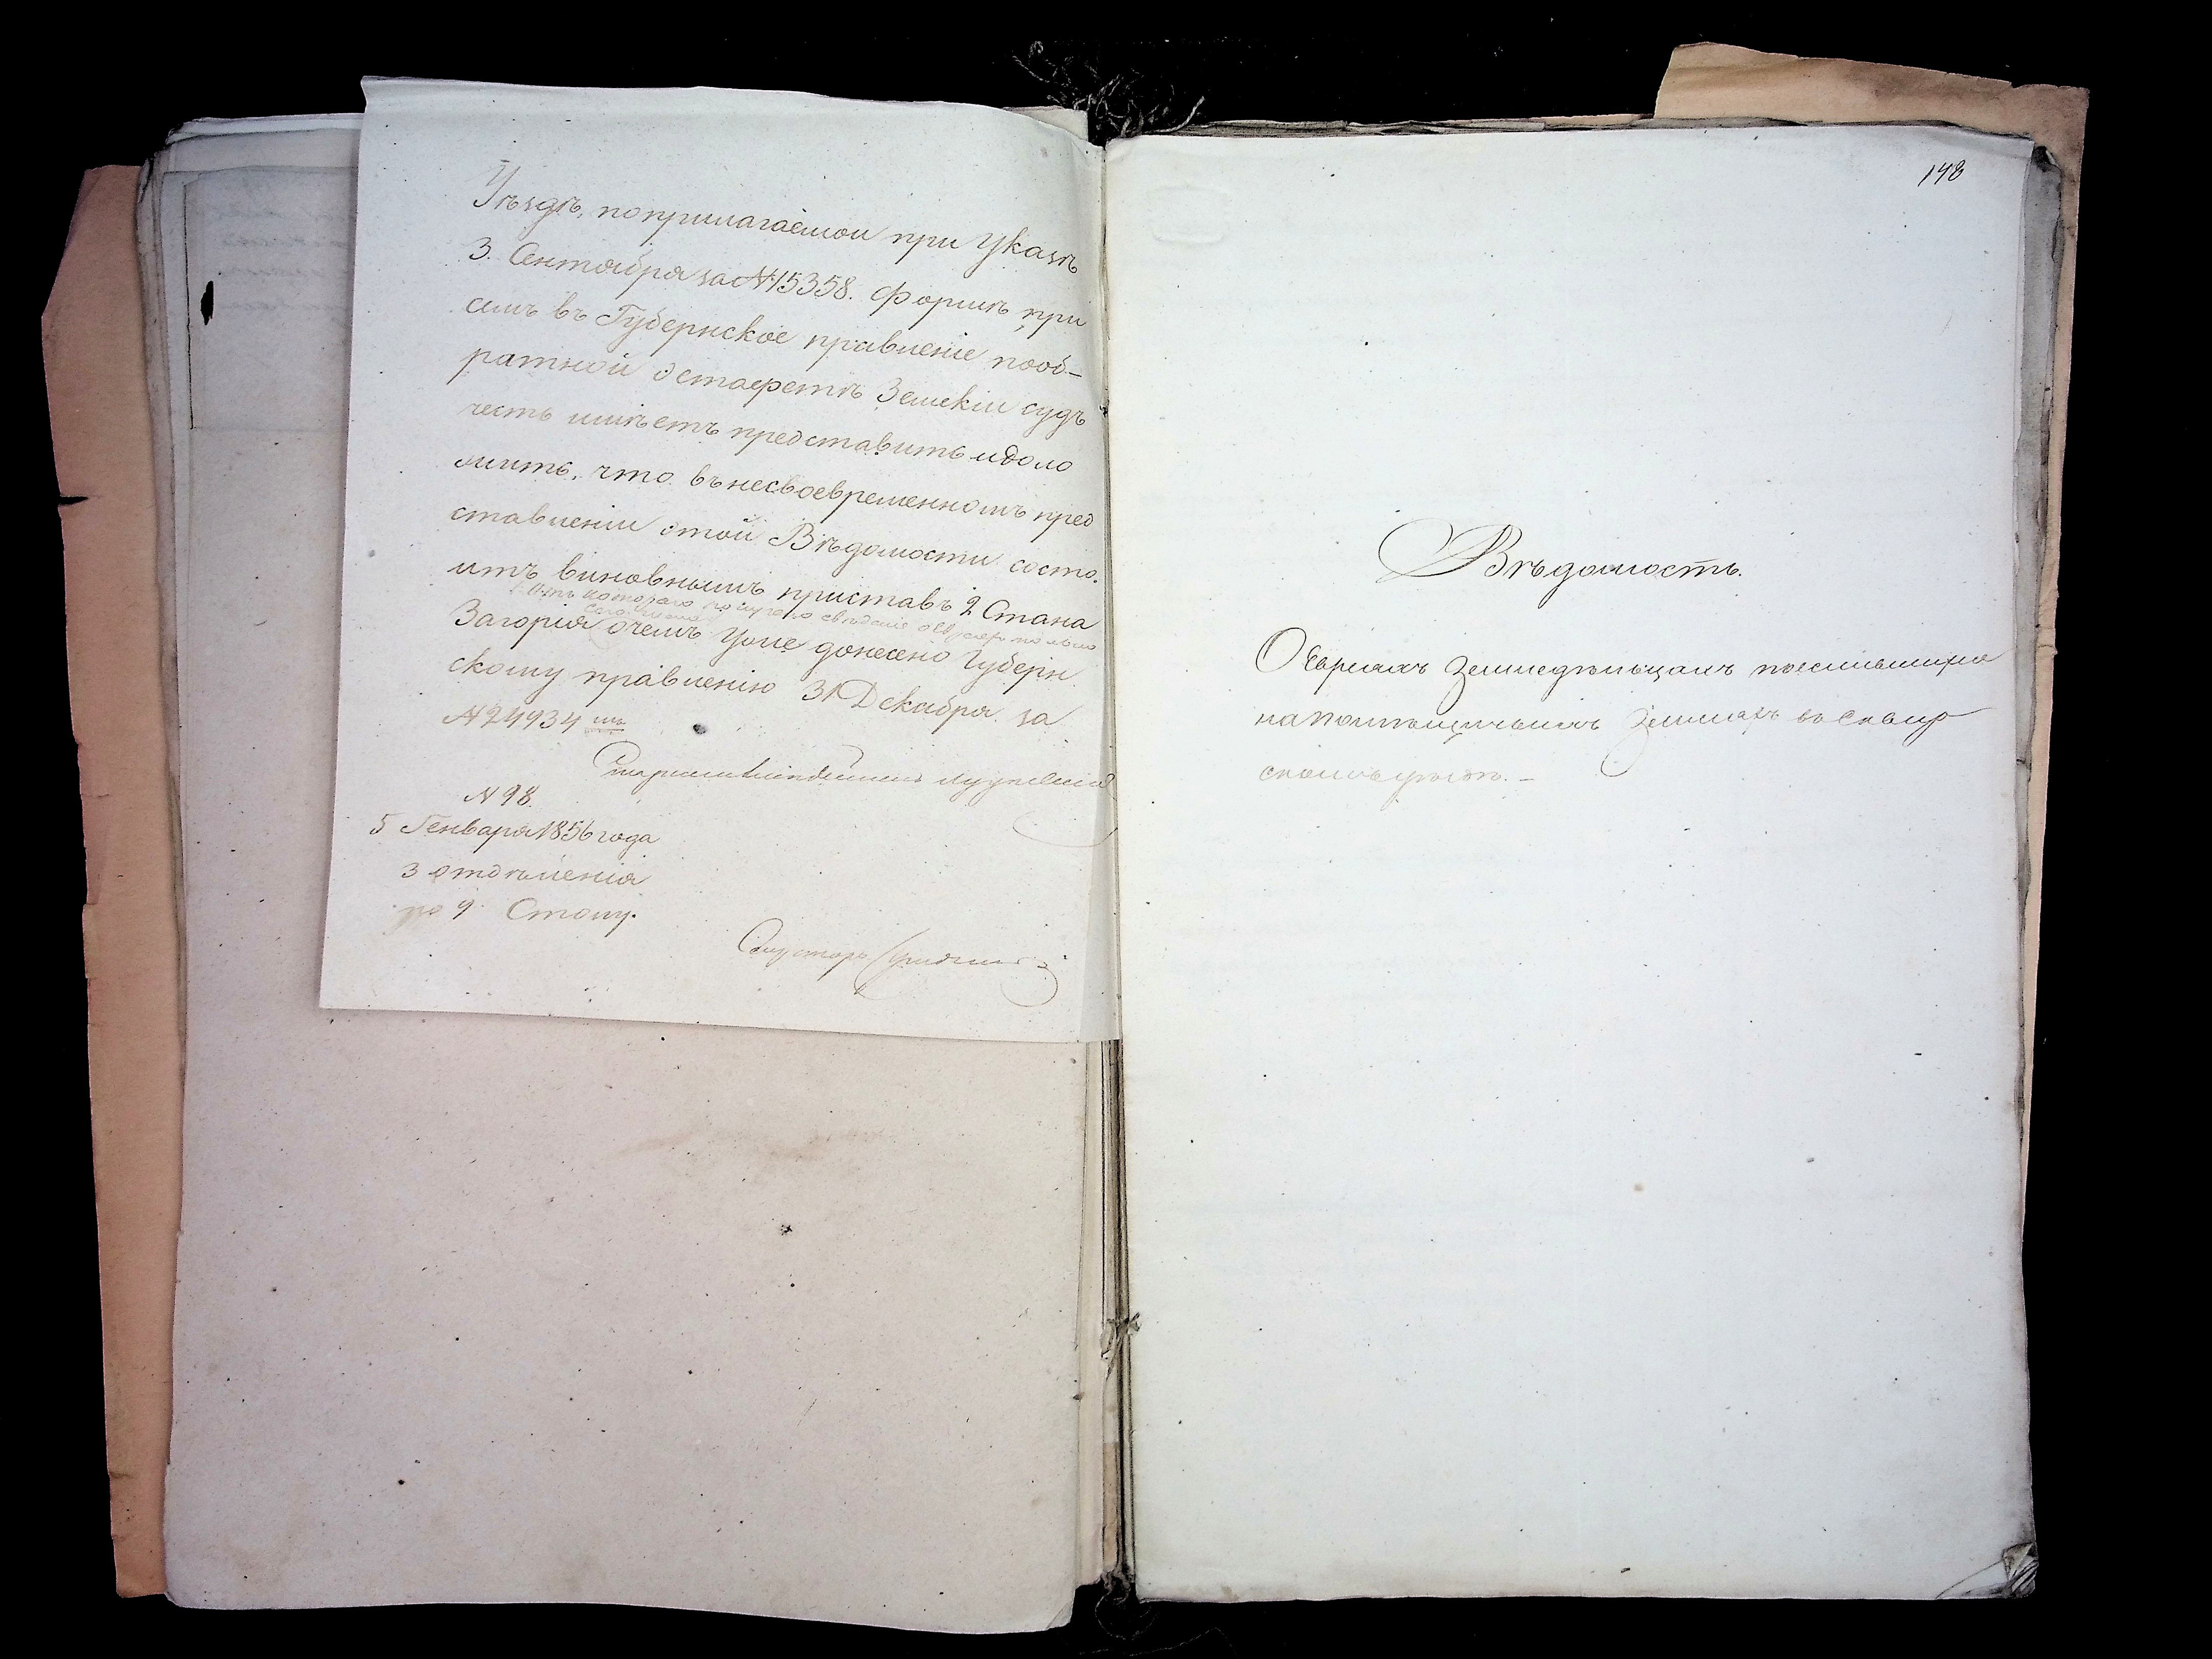 Уѣздѣ, по прилагаемой при Указѣ
3. Сентября за № 15358. формѣ при
семъ въ Губернское правленіе пооб-
ратной эстафетѣ Земскій судъ
честь имѣетъ представить и доло
жить, что въ несвоевременномъ пред
ставленіи этой Вѣдомости состо.
итъ виновнымъ приставъ 2 Стана
отъ котораго получено свѣденіе
Загорія очемъ уже донесено Губерн
скому правленію 31 Декабря за
№ 24934 мъ
№ 98.
5 Генваря 1856 года
3 отдѣленія
по 4 Столу.
148
Вѣдомость.
О Евреяхъ Земледѣльцахъ поселившихся
на помѣщичьихъ Земляхъ въ Сквир
скомъ уѣздѣ. -